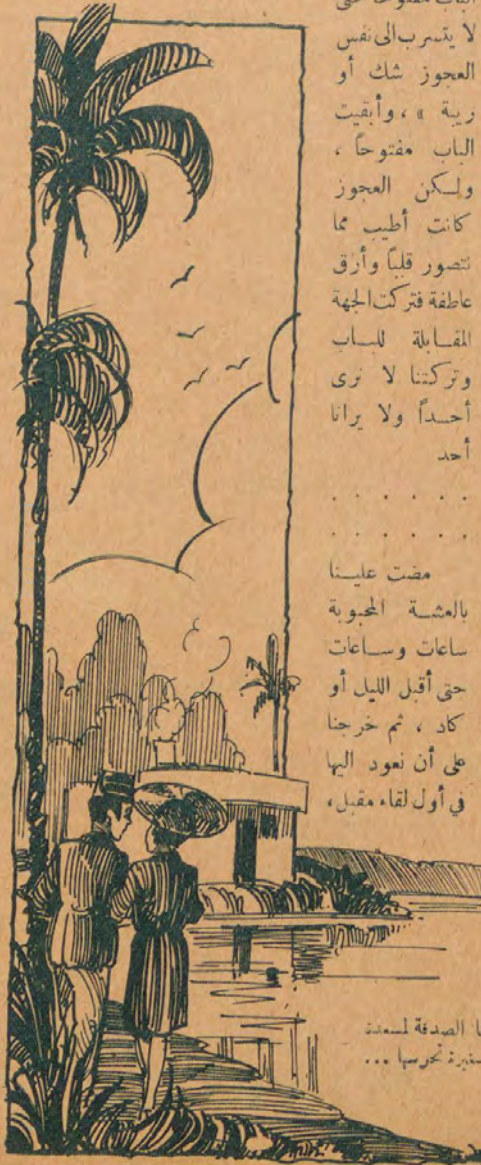 الباب مفتوحاً حتى
لا يتسرب الى نفس
العجوز شك أو
ريبة » ، وأبقيت
الباب مفتوحاً ،
ولكن العجوز
كانت أطيب مما
نتصور قلباً وأرق
عاطفة فتركت الجهة
المقابلة للباب
وتركتنا لا نرى
أحداً ولا يرانا
أحد
. . . . . .
. . . . . .
مضت علينا
بالعشة المحبوبة
ساعات وساعات
حتى أقبل الليل أو
كاد ، ثم خرجنا
على أن نعود اليها
في أول لقاء مقبل ،
الصدفة لسعدت
تحرسها ...